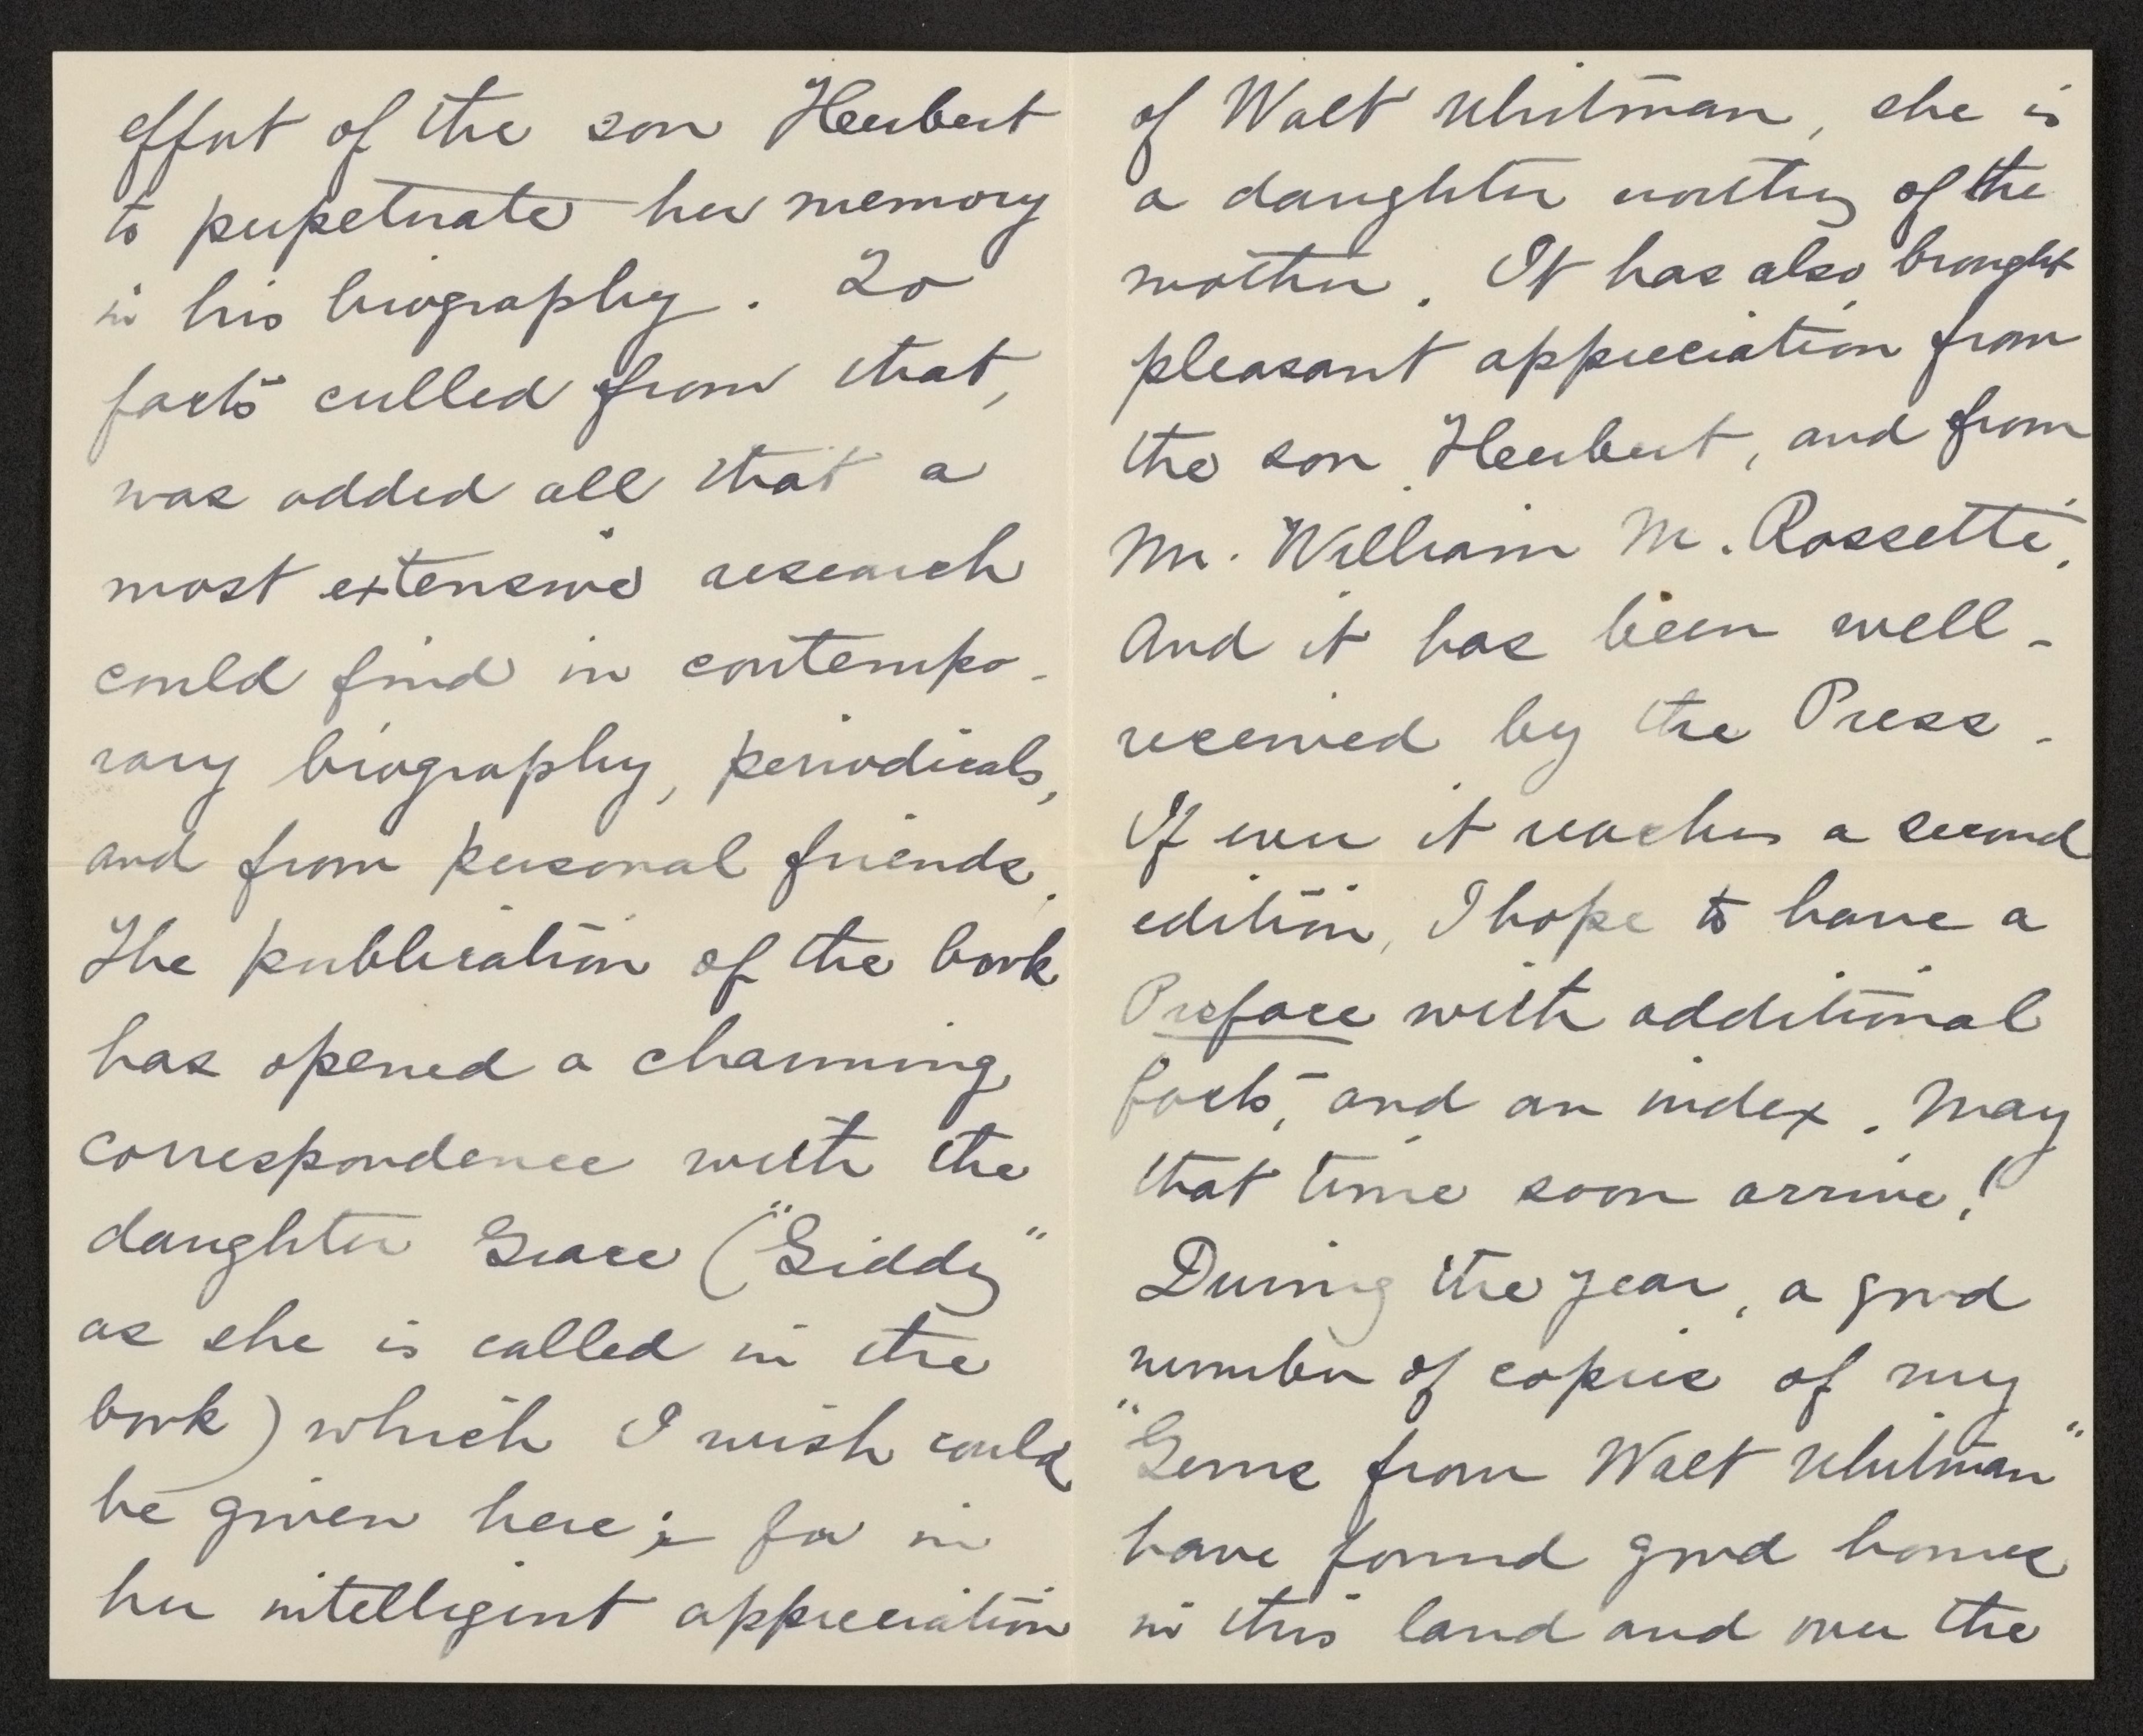 effort of the son Herbert
to perpetuate her memory
in his biography. To
facts culled from that,
was added all that a
most extensive research
could find in contempo-
rary biography, periodicals,
and from personal friends.
The publication of the book
has opened a charming
correspondence with the
daughter Grace ("Giddy"
as she is called in the
book) which I wish could
be given here; for in
her intelligent appreciation
of Walt Whitman, she is
a daughter worthy of the
mother. It has also brought
pleasant appreciation from
the son Herbert, and from
Mr. William M. Rossetti.
And it has been well-
received by the Press.
If ever it reaches a second
edition, I hope to have a
Preface with additional
facts, and an index. May
that time soon arrive!
During the year, a good
number of copies of my
"Gems from Walt Whitman"
have found good homes
in this land and over the